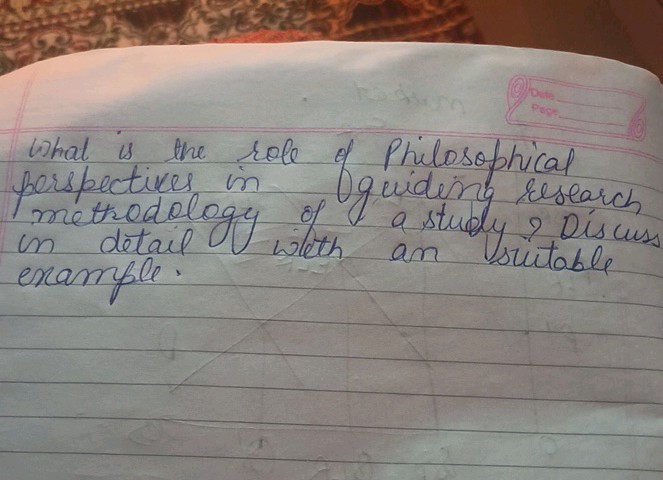 Date
Page
What is the role of Philosophical
perspectives in guiding research
methodology of a study? Discuss
in detail with an suitable
example.